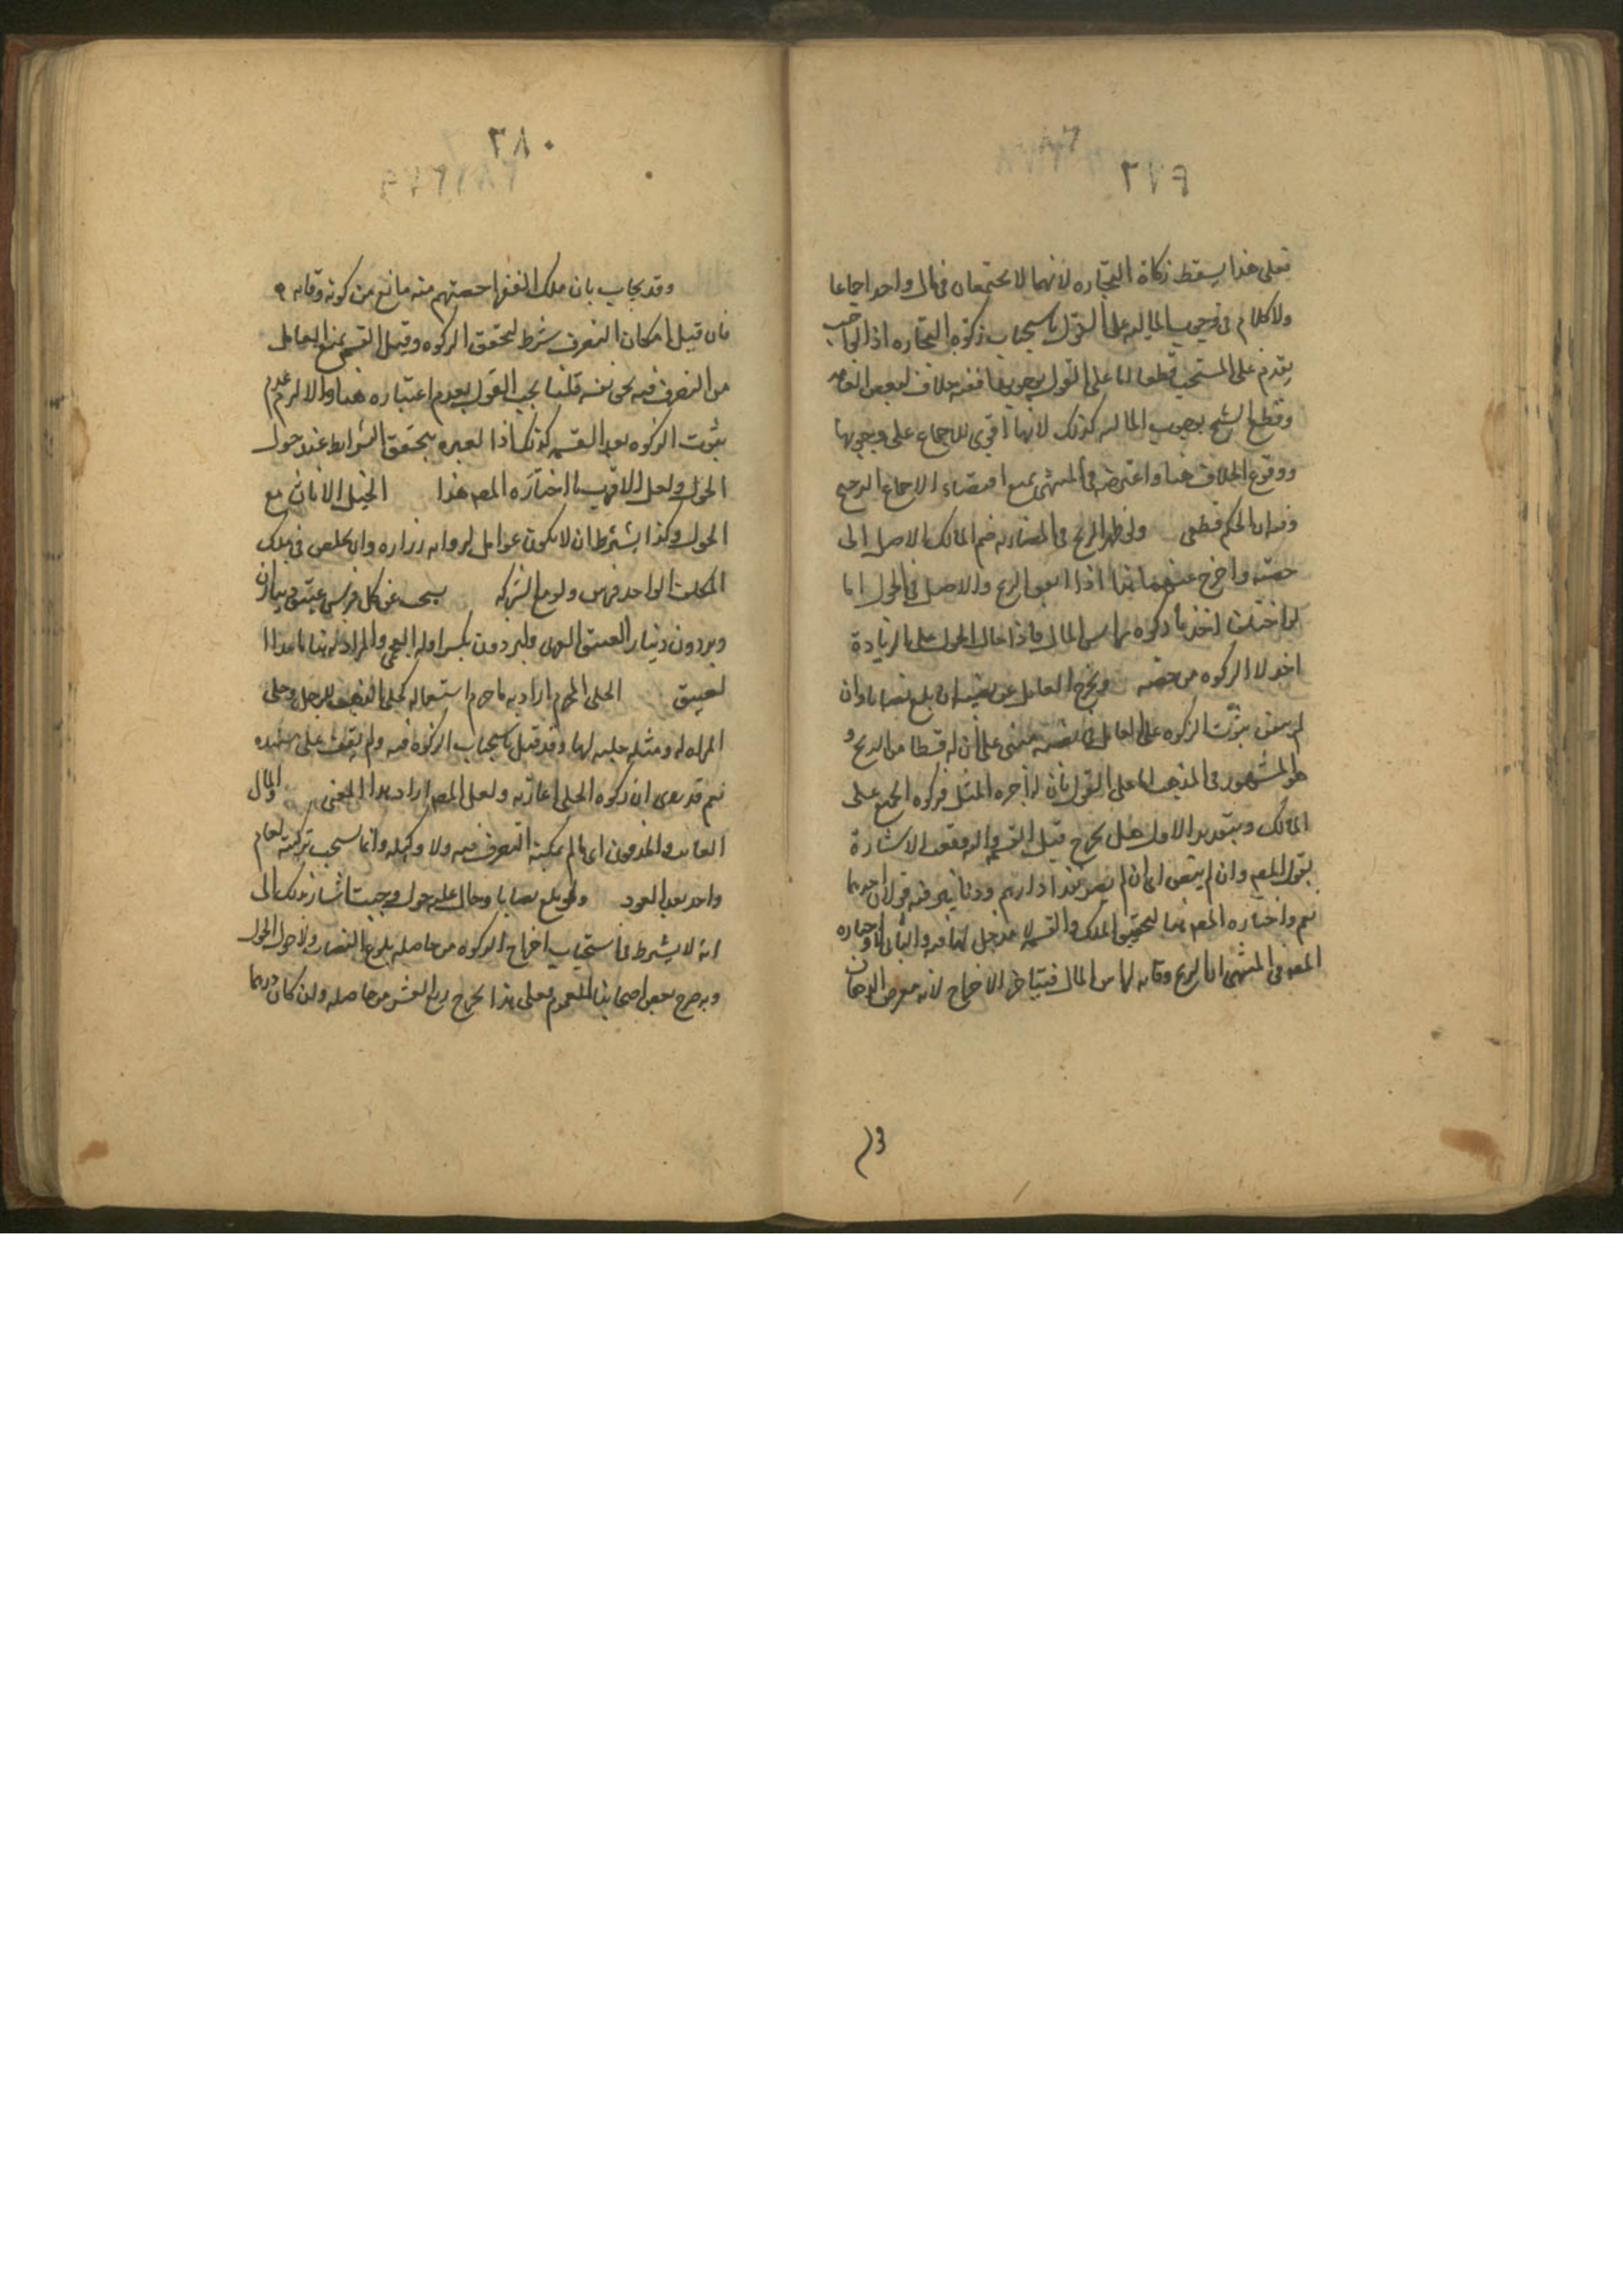 ٢٧٩
فعلى هذا يسقط زكاة التجاره لانهما لا يجتمعان في مال واحد اجماعا
ولا كلام في وجوب الماليه على القول باستحباب زكوة التجاره اذ الواجب
يقدم على المستحب قطعا اما على القول بوجوبها ففيه خلاف لبعض العامه
وقطع الشيخ بوجوب الماليه كذلك لانها اقوى للاجماع على وجوبها
ووقوع الخلاف هنا واعترضه في المنتهى بمنع اقتضاء الاجماع الترجيح
ولو ظهر الربح في المضاربه ضم المالك الاصل الى
حصته واخرج عنهما هذا اذا اتفق الربح والاصل في الحول اما
لو اختلفا اخذنا زكوة راس المال فاذا حال الحول على الزيادة
اخذ الزكوه من حصته ويخرج العامل عن نصيبه ان بلغ نصابا وان
لم ينض ثبوت الزكوه على العامل في نصيبه مبنى على ان له قسطا من الربح و
هو المشهور في المذهب اما على القول بان له اجره المثل فزكوه الجميع على
المالك وبتقدير الاول هل يخرج قبل القسمه واليه وقعت الاشارة
بقول المصه وان لم ينض اى ان لم يصر نقدا دراهم ودنانير فيه قولان احدهما
نعم واختاره المصه هنا لتحقق الملك والقسمه لا مدخل لها فيه والثاني لا واختاره
المصه في المنتهى اذ الربح وقايه لراس المال فيتاخر الاخراج لانه معرض النقصان
وقد
٢٨٠
وقد يجاب بان ملك الفقراء حصتهم منه مانع من كونه وقايه
فان قيل امكان التصرف شرط لتحقق الزكوه وقبل القسمه يمنع العامل
من التصرف فيه بحق نفسه قلنا يجب القول بعدم اعتباره هنا والا لزم عدم
ثبوت الزكوه بعد القسمه كذلك اذ العبره بتحقق الشرايط عند حول
الحول ولعل الاقرب ما اختاره المصه هذا الخيل الاناث مع
الحول وكذا يشترط ان لا يكون عوامل لروايه زراره وان يخلص في ملك
المكلف الواحد فرس ولو مع الشركه يستحب عن كل فرس عتيق ديناران
وبرذون دينار العتيق العربى والبرذون بكسر اوله العجمى والمراد به هنا ما عدا ا
لعتيق الحلى المحرم اراد به ما حرم استعماله كحلى الذهب للرجل وحلى
المراه له ومثله حليه لها وقد قيل باستحباب الزكوه فيه ولم يقف على سنده
نعم قد روى ان زكوه الحلى اعارته ولعل المصه اراد هذا المعنى والمال
الغايب والمدفون اى ما لم يمكنه التصرف فيه ولا وكيله وانما يستحب تزكيته لعام
واحد بعد العود ولو بلغ نصابا وحال عليه حول وجبت اشار بذلك الى
انه لا يشترط في استحباب اخراج الزكوه من حاصله بلوغ النصاب ولا حول الحول
وبه صرح بعض اصحابنا للعموم فعلى هذا يخرج ربع العشر من حاصله ولو كان درهما